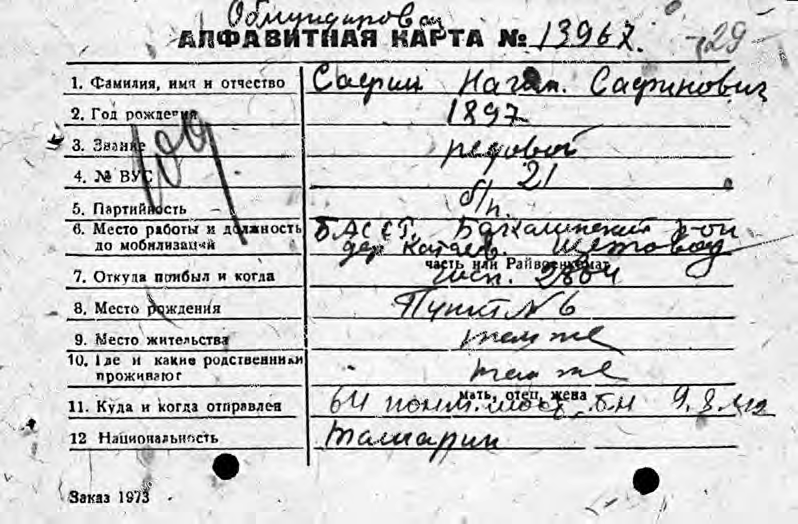 Обмундирован
АЛФАВИТНАЯ КАРТА № 13967. -29-
1. Фамилия, имя и отчество Сафин Нагим. Сафинович
2. Год рождения 1897
3. Звание рядовой
4. № ВУС 21
5. Партийность б/п.
6. Место работы и должность до мобилизации БАССР, Бакалинский р-он
дер Катаев.
часть или Райвоенкомат
7. Откуда прибыл и когда госп. 2804
8. Место рождения Пункт № 6
9. Место жительства там же
10. Где и какие родственники проживают там же
мать, отец, жена
11. Куда и когда отправлен 64 понт. мост. б-н 9.8.42
12 Национальность татарин
Заказ 1973